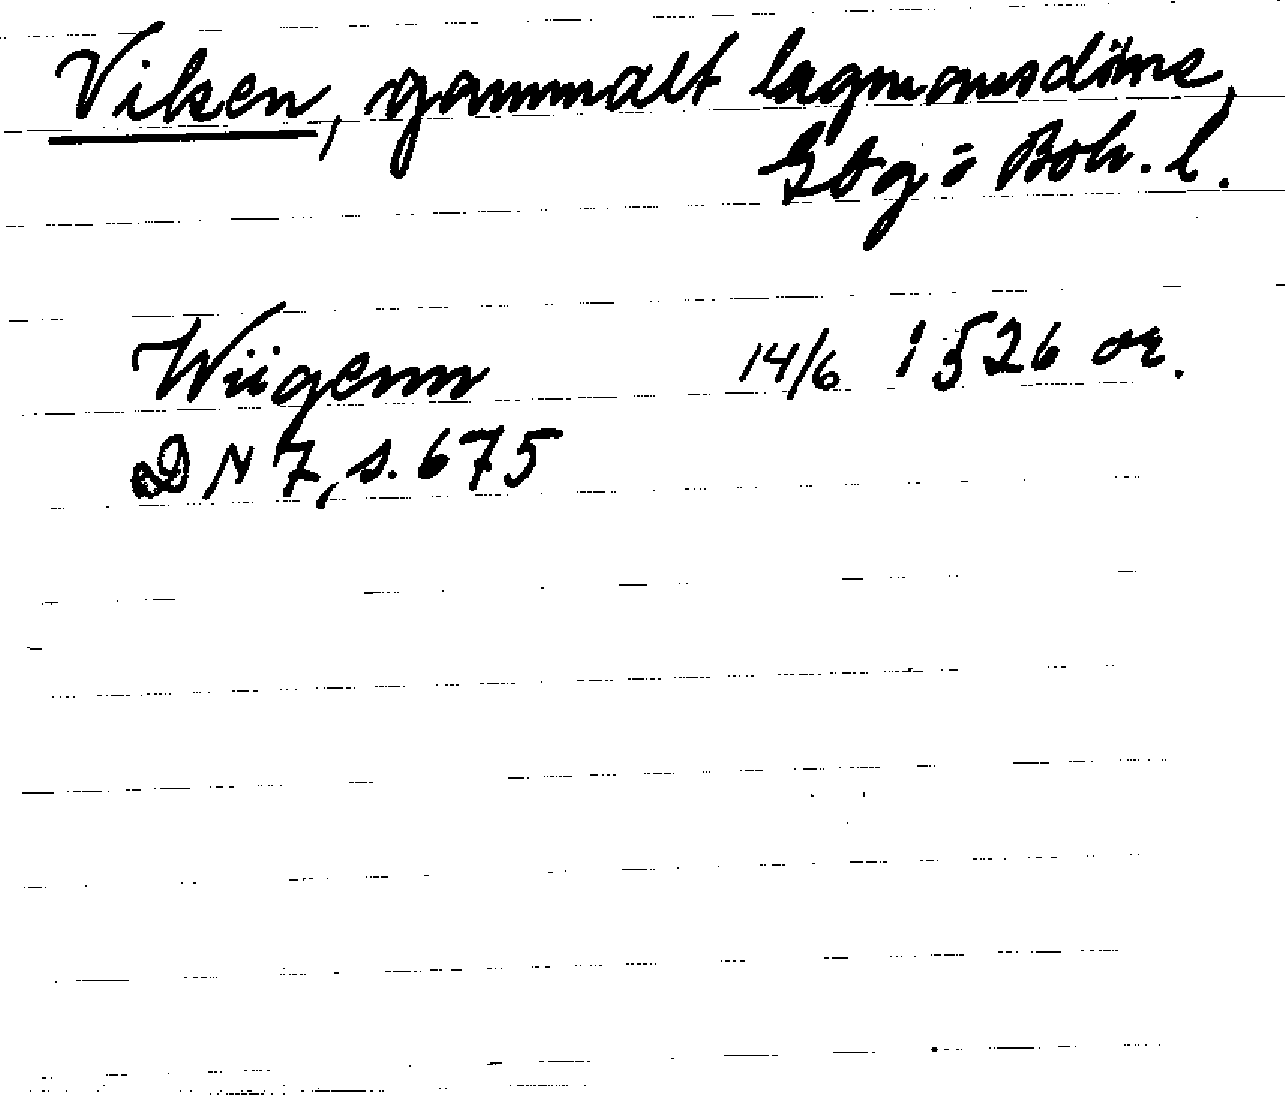 Viken, gammalt lagmansdöme,
Gbg o Boh. l.
Wiigenn 14/6 1526 or.
DN 7, s. 675